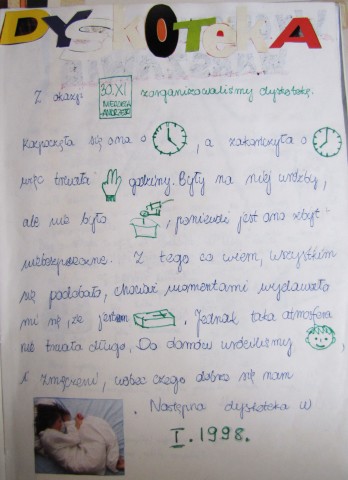 DYSKOTEKA
Z okazji 30.XI zorganizowaliśmy dyskotekę.
ANDRZEJ
Rozpoczęła się ona o , a zakończyła o
więc trwała godziny. Były na niej wróżby,
ale nie było , ponieważ jest ono zbyt
niebezpieczne. Z tego co wiem, wszystkim
się podobało, chociaż momentami wydawało
mi się, że jestem . Jednak taka atmosfera
nie trwała długo. Do domów wróciliśmy
i zmęczeni, wobec czego dobrze się nam
Następna dyskoteka w
I.1998.